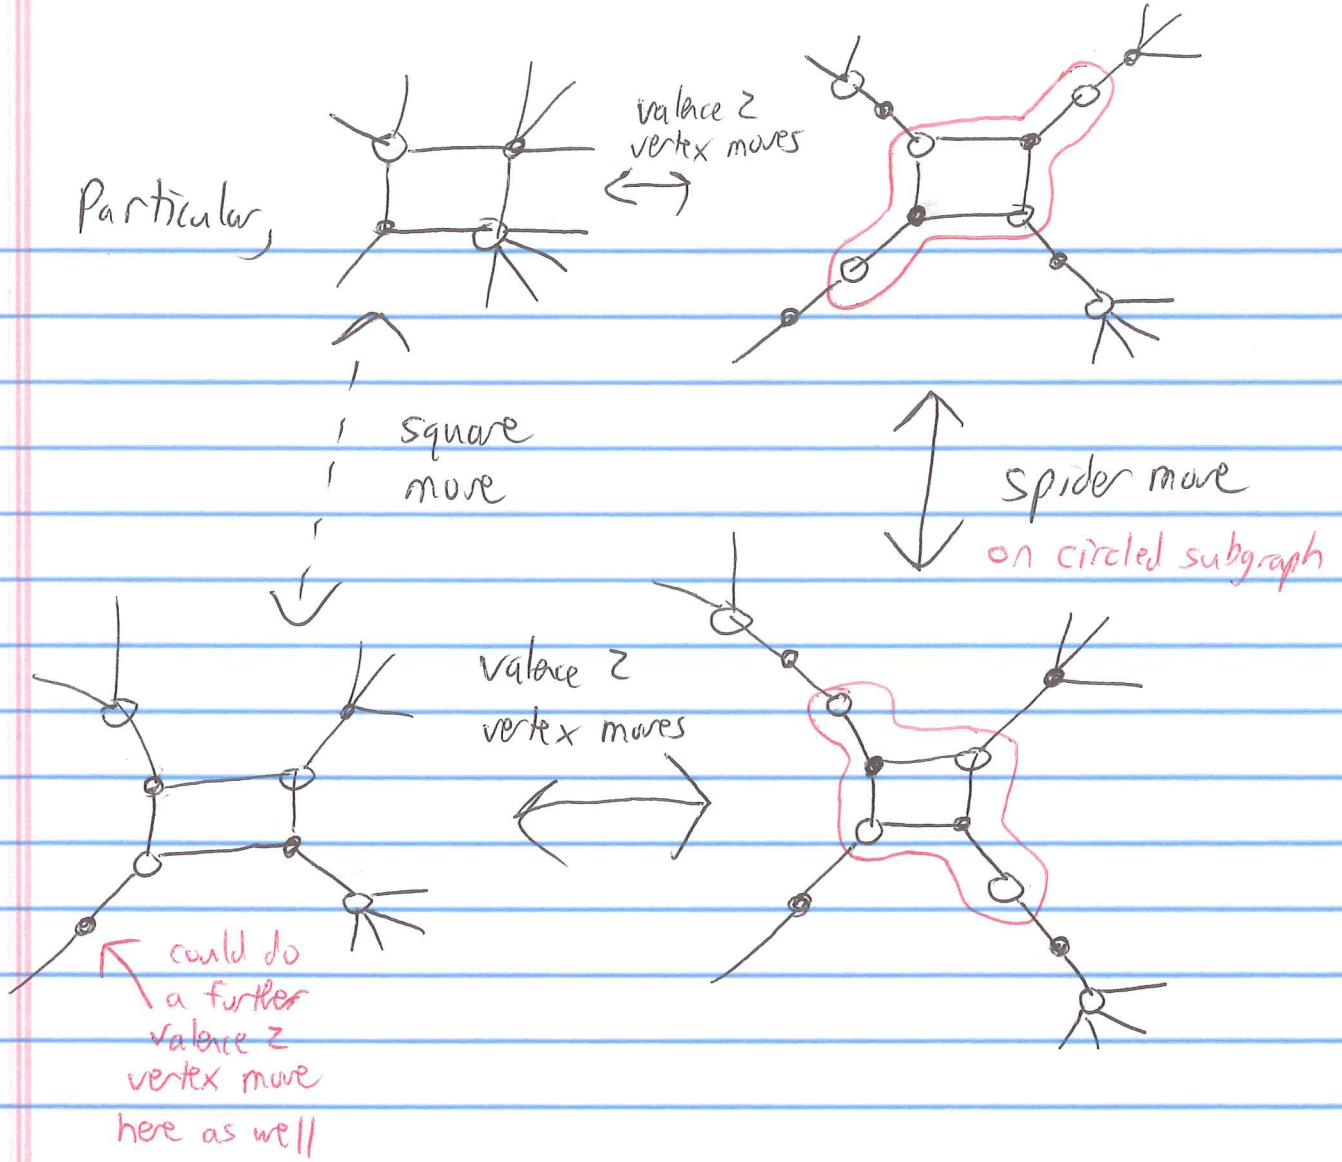 valence 2
vertex moves
Particular,
square
move
spider move
on circled subgraph
valence 2
vertex moves
could do
a further
valence 2
vertex move
here as well